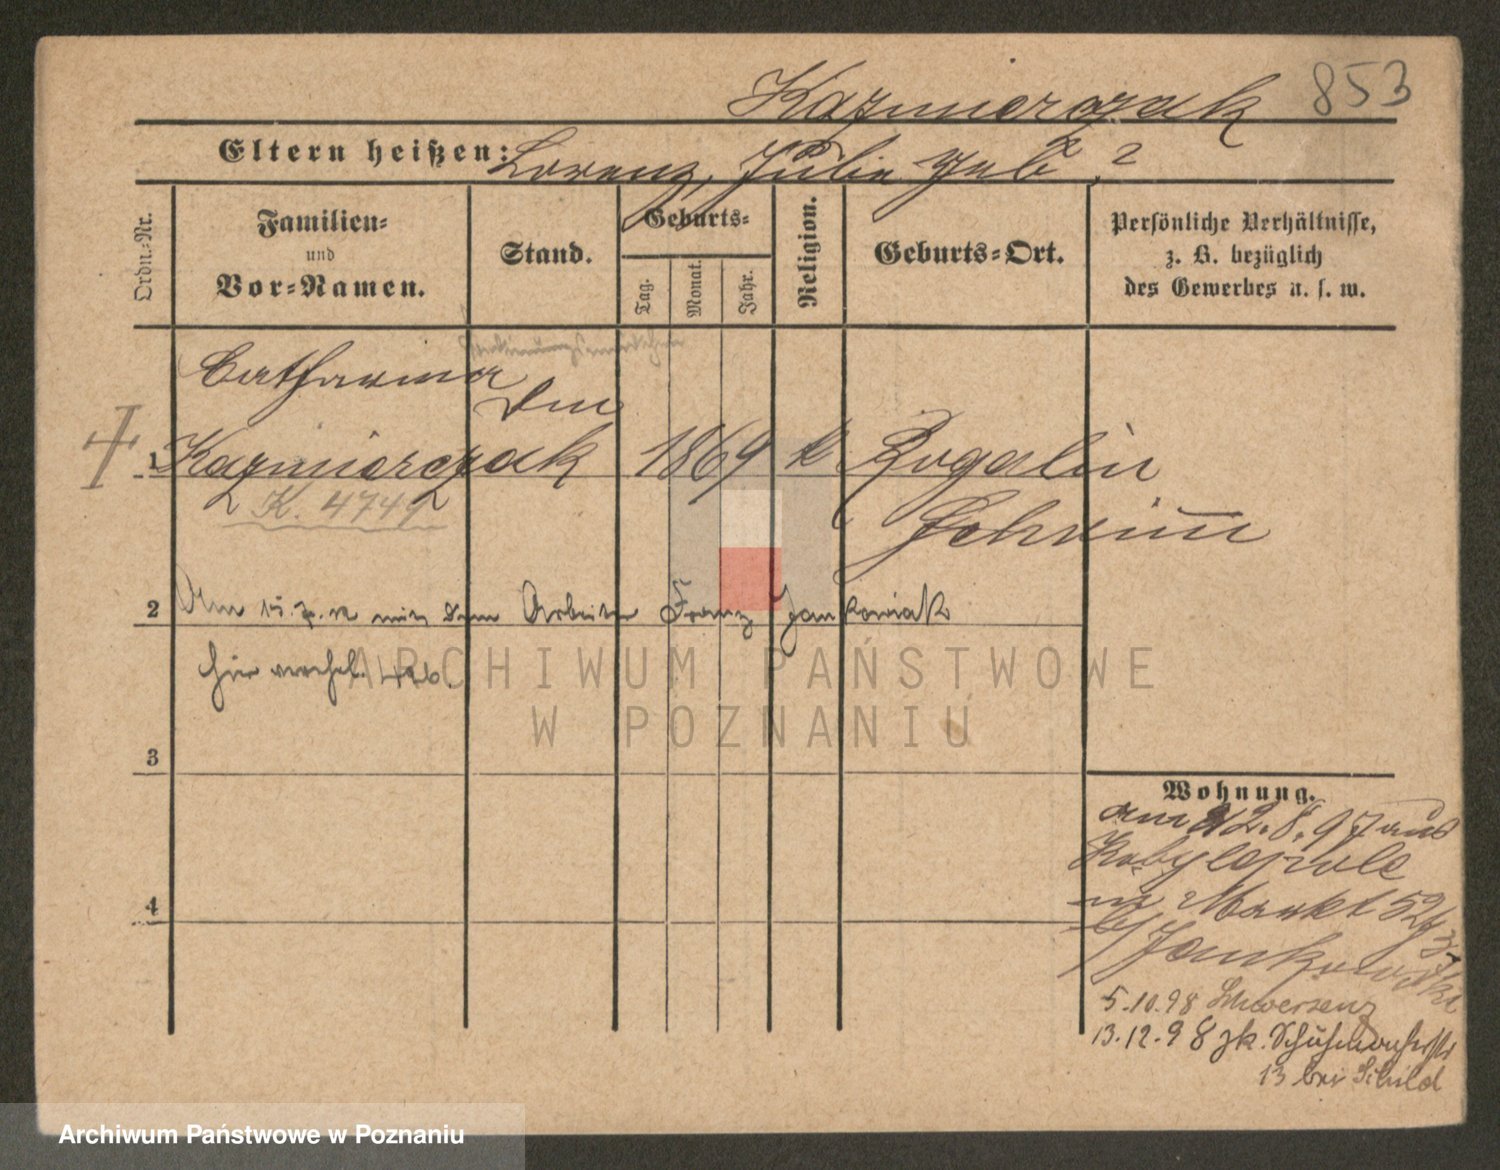 Kazmierczak 853
Eltern heißen: Lorenz, Julie geb. ?
Ordn.-Nr.
Familien-
und
Vor-Namen.
Stand.
Geburts-
Tag.
Monat.
Jahr.
Religion.
Geburts-Ort.
Persönliche Verhältnisse,
z. B. bezüglich
des Gewerbes u. s. w.
Catharina
1 Kazmierczak 1869 k Rogalin
K. 4749 Schrimm
2 Am mit dem Arbeiter Franz Jankowiak
hier verehel.
3
4
Wohnung.
am 12.8.97 aus
Kobylepole
Markt 52
b/ Jankowska
5.10.98 Schwersenz
13.12.98 zk.
13 bei Schild
ARCHIWUM PAŃSTWOWE
W POZNANIU
Archiwum Państwowe w Poznaniu